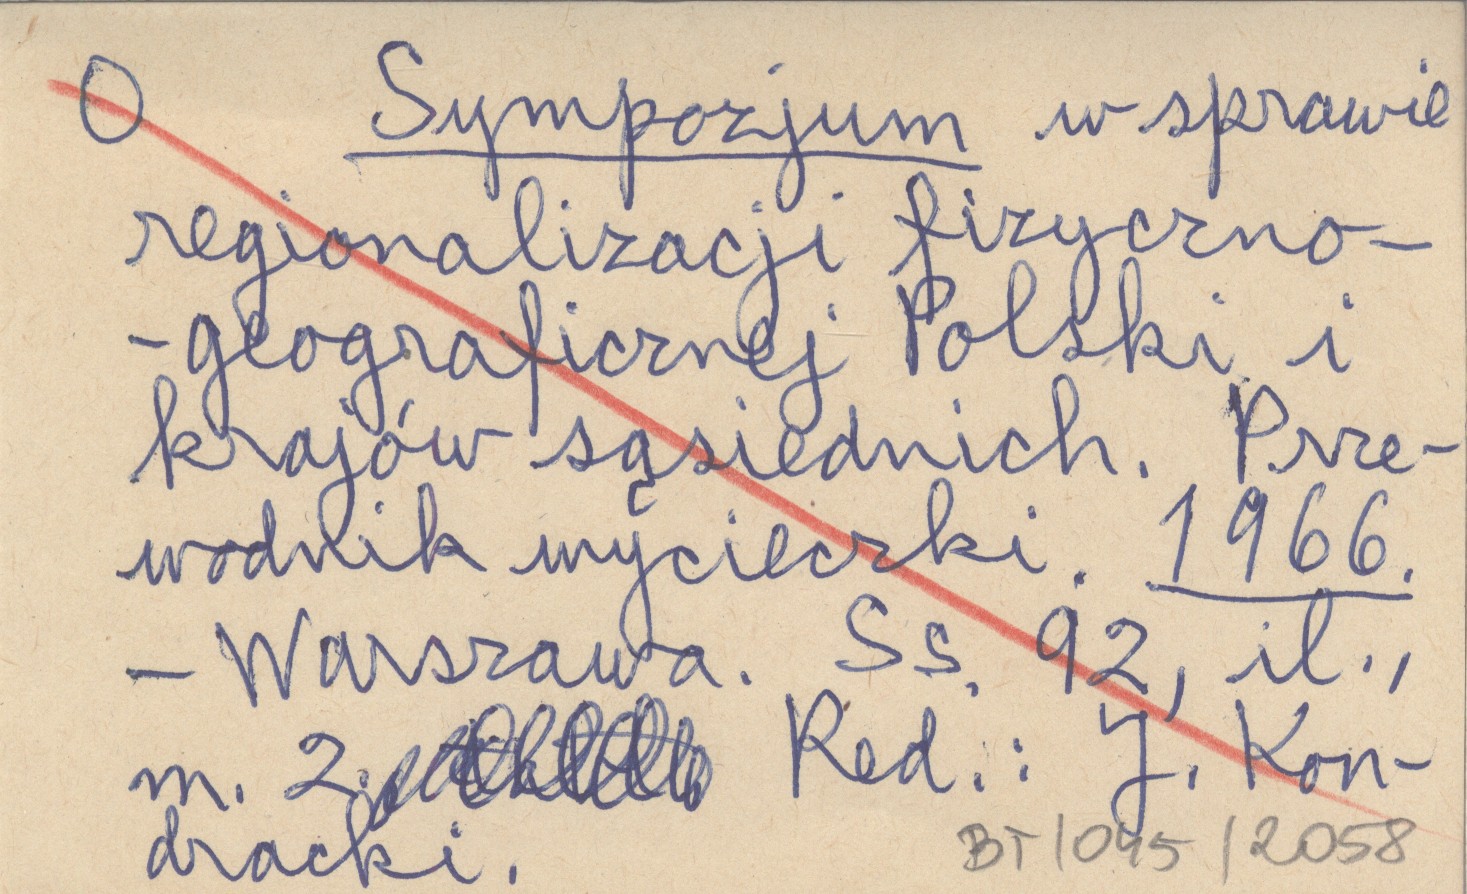 O Sympozjum w sprawie
regionalizacji fizyczno-
-geograficznej Polski i
krajów sąsiednich. Prze-
wodnik wycieczki. 1966.
- Warszawa. Ss. 92, il.,
m. 2. Red.: J. Kon-
dracki.
BT/045/2058